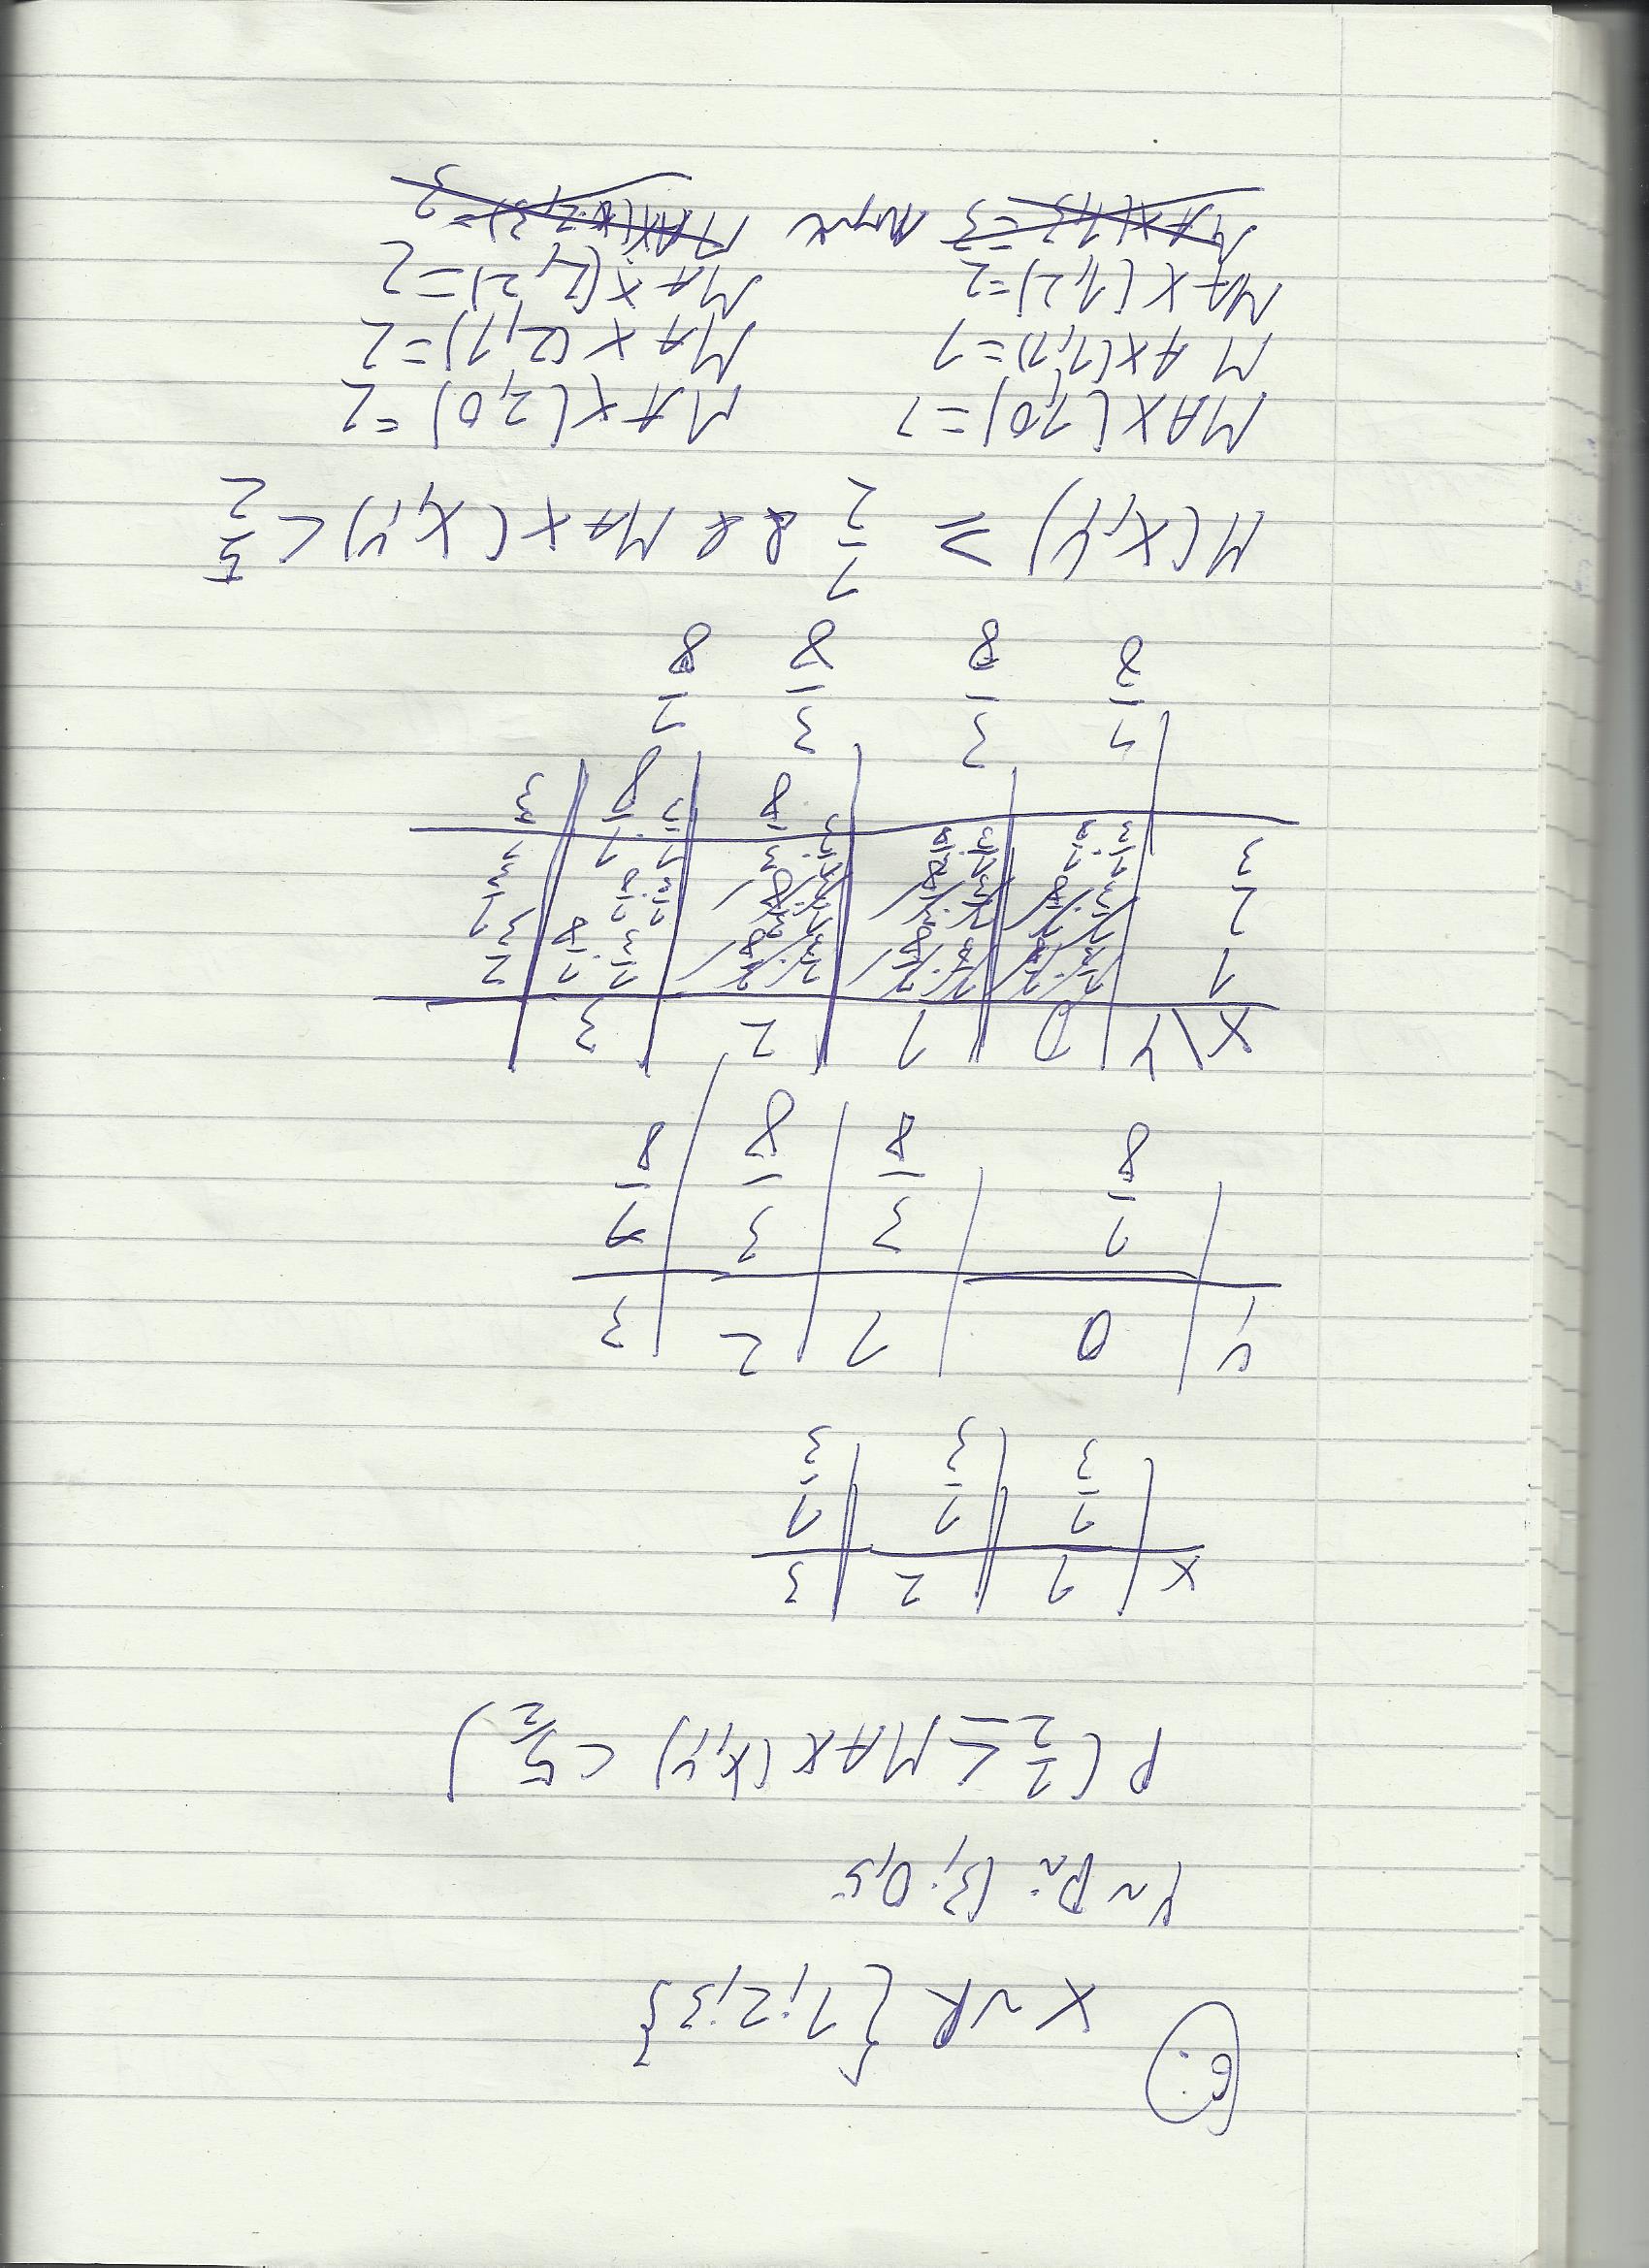 6.
X ~ R {1;2;3}
Y ~ Bi (3; 0,5
P ( 1/2 ≤ MAX (X,Y) < 5/2 )
X | 1 | 2 | 3
1/3 | 1/3 | 1/3
Y | 0 | 1 | 2 | 3
1/8 | 3/8 | 3/8 | 1/8
X\Y | 0 | 1 | 2 | 3
1 | 1/3 · 1/8 | 1/3 · 3/8 | 1/3 · 3/8 | 1/3 · 1/8 | 1/3
2 | 1/3 · 1/8 | 1/3 · 3/8 | 1/3 · 3/8 | 1/3 · 1/8 | 1/3
3 | 1/3 · 1/8 | 1/3 · 3/8 | 1/3 · 3/8 | 1/3 · 1/8 | 1/3
1/8 3/8 3/8 1/8
M(X,Y) ≥ 1/2 && MAX(X,Y) < 5/2
MAX(1,0)=1 MAX(2,0)=2
MAX(1,1)=1 MAX(2,1)=2
MAX(1,2)=2 MAX(2,2)=2
MAX(1,3=3 MAX(2,3)=3